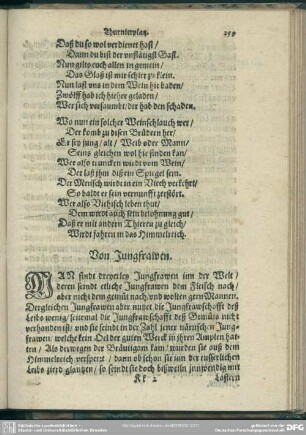 Thurnierplatz.
Daß du so wol verdienet hast/
Dann du bist der vnflätigst Gast.
Nun gilts euch allen in gemein/
Das Glaß ist mir schier zu klein.
Nun last vns in dem Wein hie baden/
Zwölff hab ich hieher geladen/
Wer sich versaumbt/ der hab den schaden.
Wo nun ein solcher Weinschlauch wer/
Der komb zu disen Brüdern her/
Er sey jung/ alt/ Weib oder Mann/
Seins gleichen wol hie finden kan/
Wer also truncken wirdt vom Wein/
Der laß ihm diß ein Spiegel sein.
Der Mensch wirdt in ein Viech verkehrt/
So baldt er sein vernunfft zerstört.
Wer also Viehisch lebet thut/
Dem wirdt auch sein belohnung gut/
Daß er mit andern Thieren zu gleich/
Wirdt fahren in das Himmelreich.
Von Jungfrawen.
MAN findt dreyerley Jungfrawen inn der Welt/
deren seindt etliche Jungfrawen dem Fleisch nach/
aber nicht dem gemüt nach/ vnd wolten gern Mannen.
Dergleichen Jungfrawen aber nutzet die Jungfrawschafft deß
Leibs wenig/ seitemal die Jungfrawschafft deß Gemüts nicht
verhanden ist/ vnd sie seindt in der Zahl jener närrischen Jung-
frawen/ welche kein Oel der guten Werck in jhren Ampeln hat-
ten/ Als derwegen der Bräutigam kam/ wurden sie auß dem
Himmelreich versperrt/ dann ob schon sie inn der eusserlichen
Leibs zierd glantzen/ so seindt sie doch bißweiln jnnwendig mit
Kk 2
Lastern